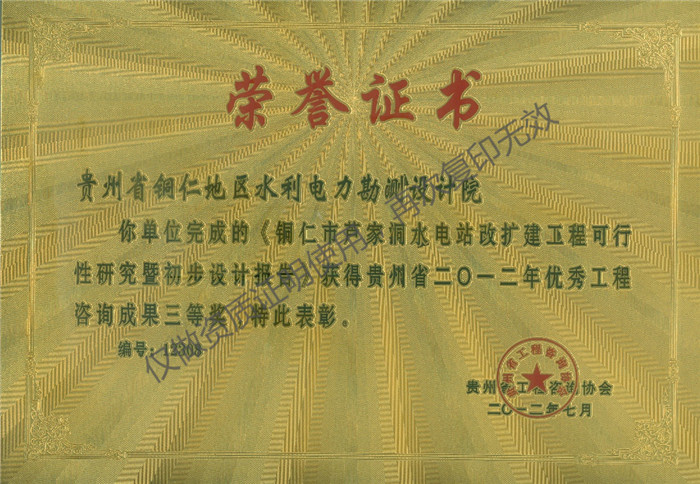 荣誉证书
贵州省铜仁地区水利电力勘测设计院
你单位完成的《铜仁市芦家洞水电站改扩建工程可行
性研究暨初步设计报告》获得贵州省二〇一二年优秀工程
咨询成果三等奖，特此表彰。
编号：12303
贵州省工程咨询协会
二〇一二年七月
贵州省工程咨询协会
仅做资质证明使用，再如复印无效